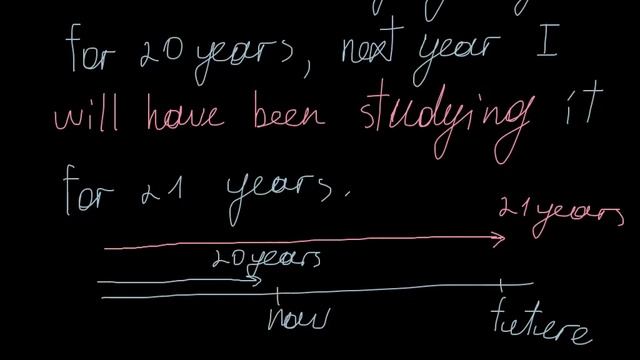 for 20 years, next year I
will have been studying it
for 21 years.
21 years
20 years
now
future